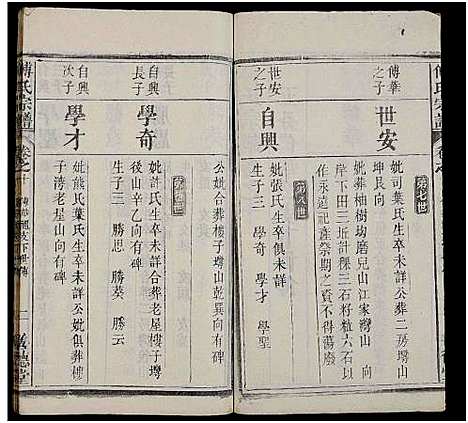 傅氏宗譜
傅華
之子
世安
第七世
妣司葉氏生卒未詳公葬二房塆山
坤艮向
妣葬柚樹坊磨兒山江家灣山 向
岸下田三坵計稞三石將粒六石以
作永遠記產祭期之資不得蕩廢
世安
之子
自興
第八世
妣張氏生卒俱未詳
生子三 學奇 學才 學聖
公妣合葬樓子塆山乾巽向有碑
第九世
自興
長子
學奇
妣許氏生卒未詳合葬老屋樓子塆
後山辛乙向有碑
生子二 勝葵 勝云
自興
次子
學才
妣熊氏葉氏生卒未詳公妣俱葬樓
子灣老屋山向有碑
傅氏宗譜
卷之
一
敬德堂